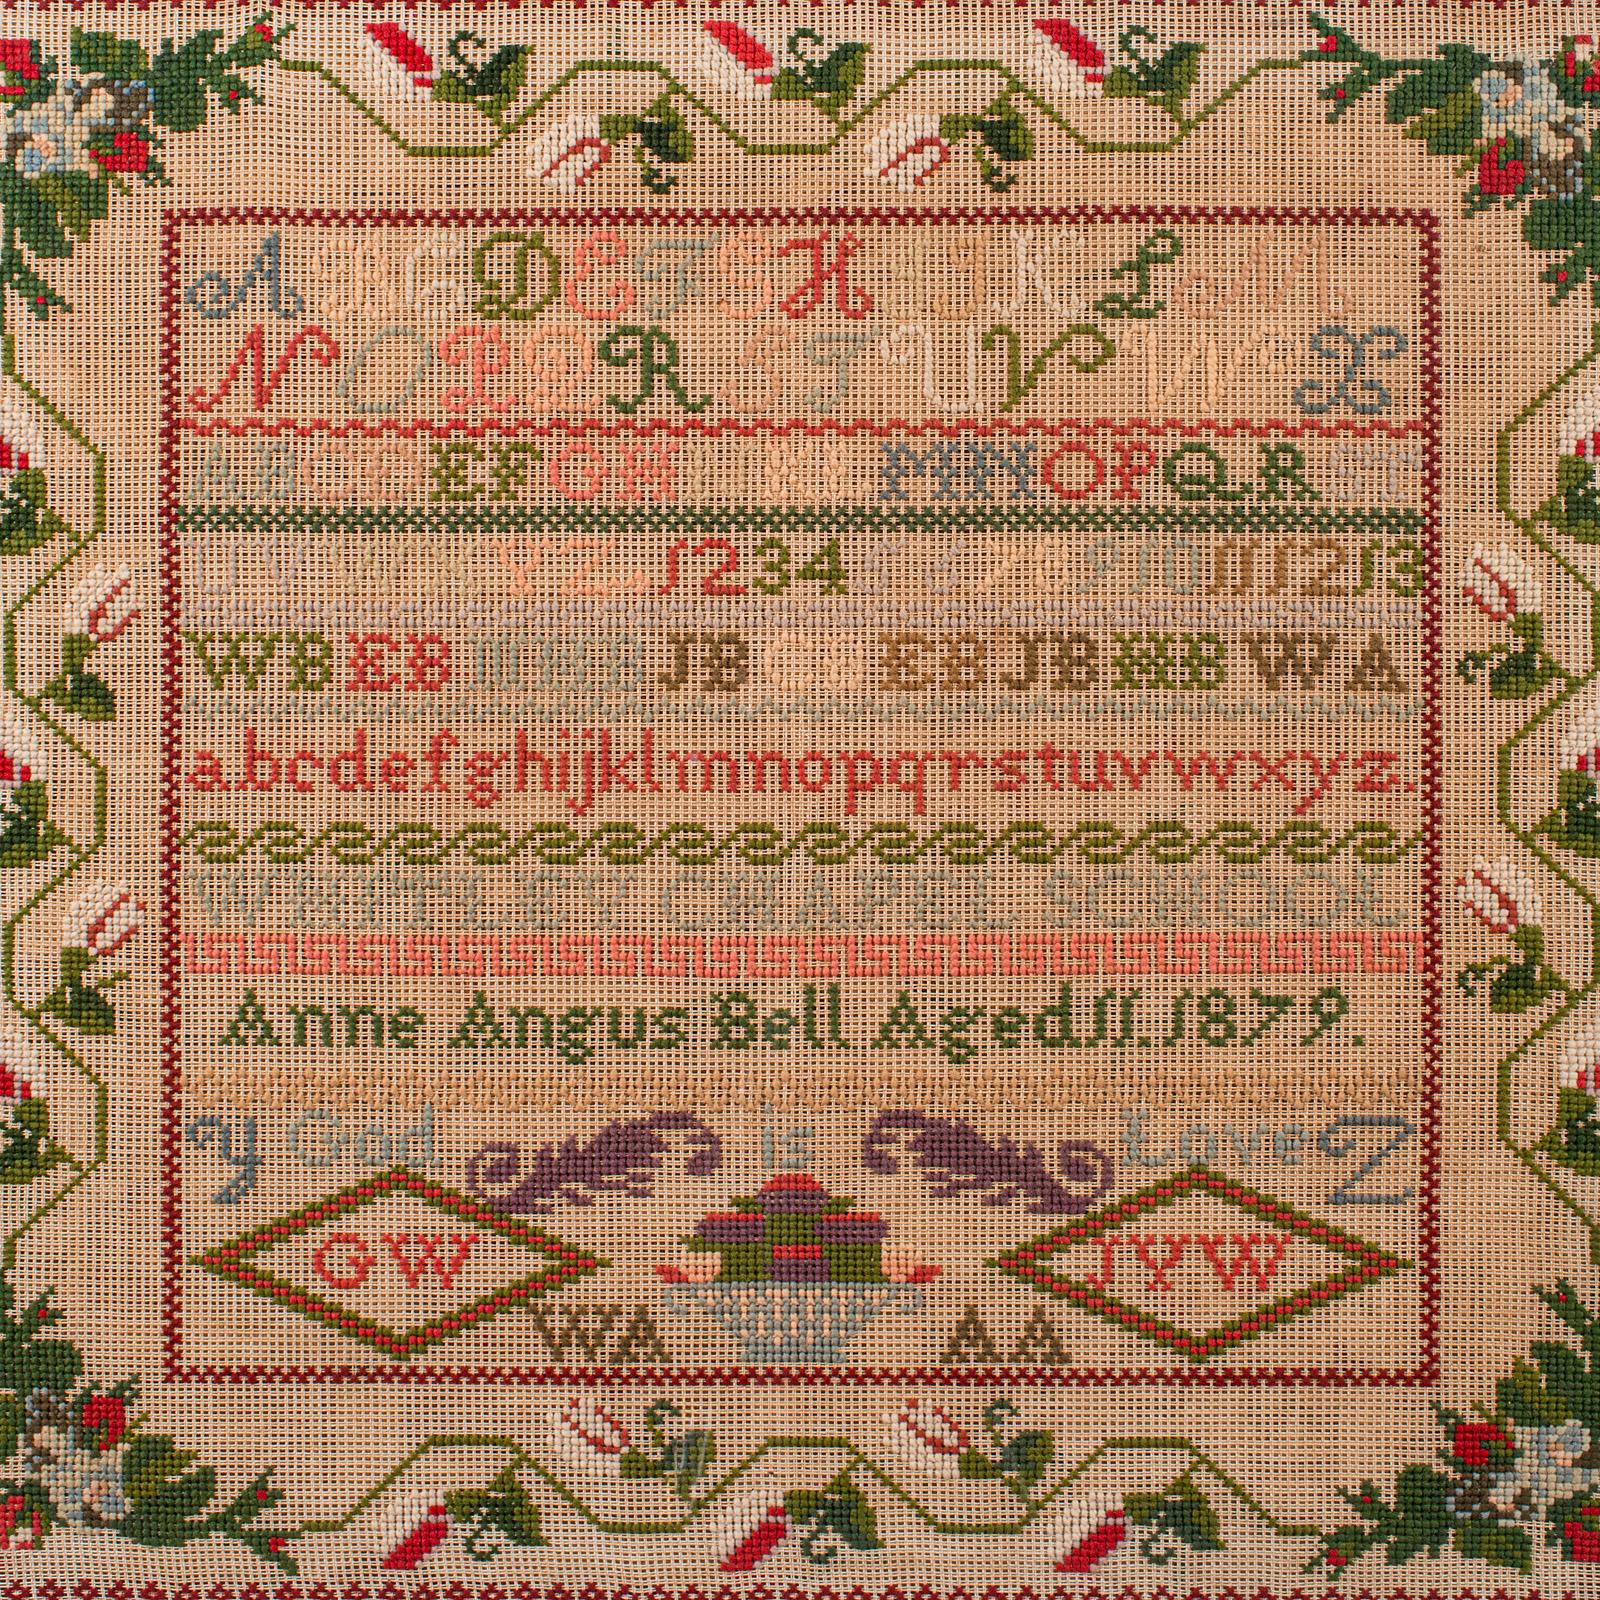 A B C D E F G H I J K L M
N O P Q R S T U V W X
A B C D E F G H I J K L M N O P Q R S T
U V W X Y Z . 1 2 3 4 5 6 7 8 9 10 11 12 13
WB EB MB JB EB JB WA
a b c d e f g h i j k l m n o p q r s t u v w x y z .
WHITLEY CHAPEL SCHOOL
Anne Angus Bell Aged 11. 1879.
Y God Is Love Z
GW JYW
WA AA